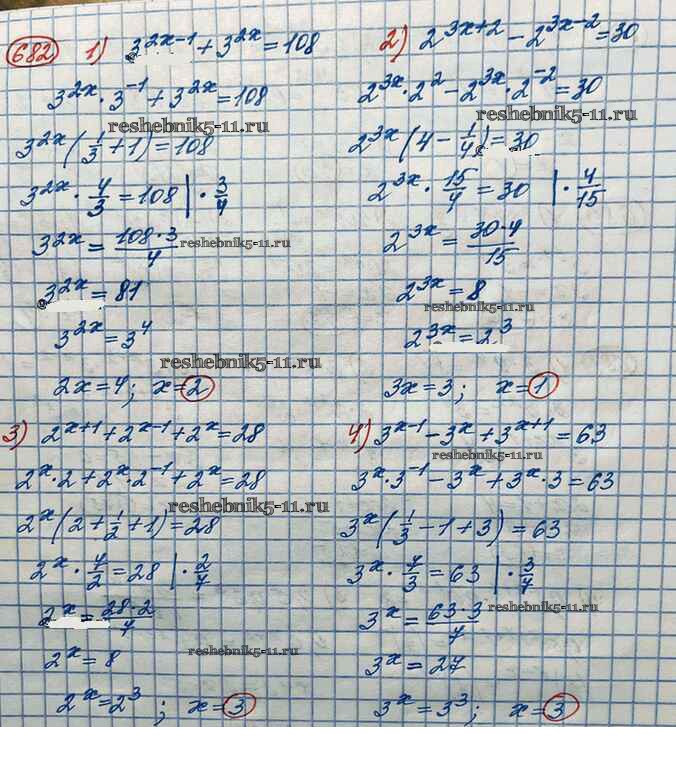 682 1) 3^(2x-1) + 3^(2x) = 108
3^(2x) · 3^(-1) + 3^(2x) = 108
reshebnik5-11.ru
3^(2x) (1/3 + 1) = 108
3^(2x) · 4/3 = 108 | · 3/4
3^(2x) = (108·3)/4
reshebnik5-11.ru
3^(2x) = 81
3^(2x) = 3^4
reshebnik5-11.ru
2x = 4; x = 2
2) 2^(3x+2) - 2^(3x-2) = 30
2^(3x) · 2^2 - 2^(3x) · 2^(-2) = 30
reshebnik5-11.ru
2^(3x) (4 - 1/4) = 30
2^(3x) · 15/4 = 30 | · 4/15
2^(3x) = (30·4)/15
2^(3x) = 8
reshebnik5-11.ru
2^(3x) = 2^3
3x = 3; x = 1
3) 2^(x+1) + 2^(x-1) + 2^x = 28
2^x · 2 + 2^x · 2^(-1) + 2^x = 28
reshebnik5-11.ru
2^x (2 + 1/2 + 1) = 28
2^x · 7/2 = 28 | · 2/7
2^x = (28·2)/7
reshebnik5-11.ru
2^x = 8
2^x = 2^3; x = 3
4) 3^(x-1) - 3^x + 3^(x+1) = 63
reshebnik5-11.ru
3^x · 3^(-1) - 3^x + 3^x · 3 = 63
3^x (1/3 - 1 + 3) = 63
3^x · 7/3 = 63 | · 3/7
3^x = (63·3)/7
reshebnik5-11.ru
3^x = 27
3^x = 3^3; x = 3